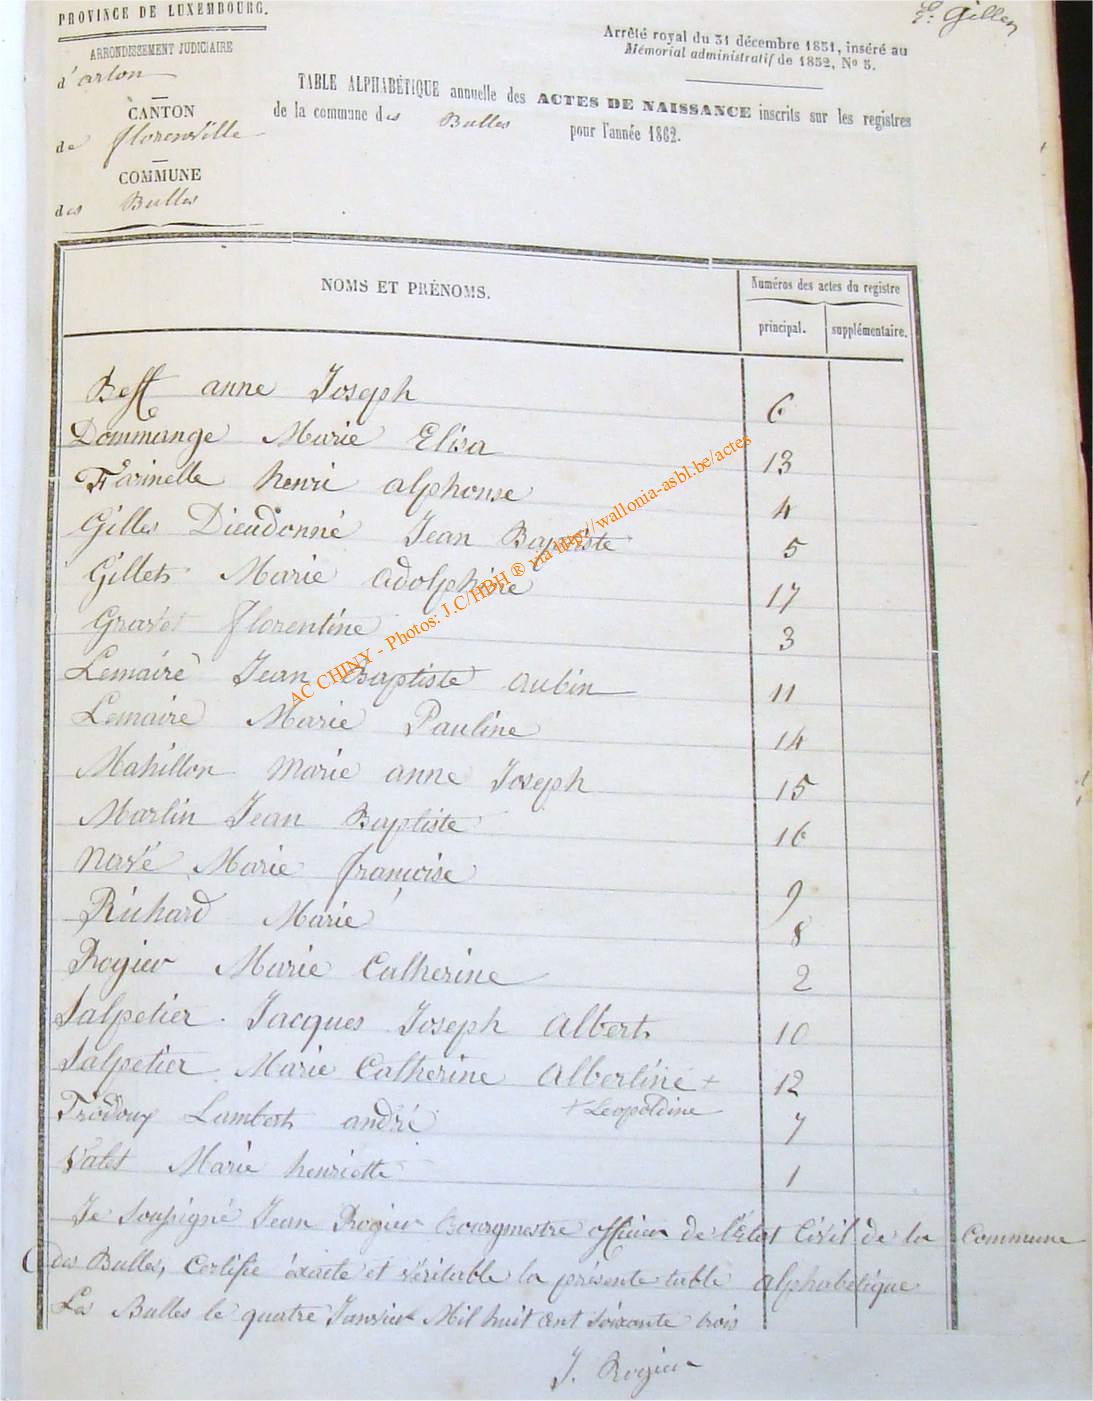 PROVINCE DE LUXEMBOURG.
ARRONDISSEMENT JUDICIAIRE
d'arlon
CANTON
de florenville
COMMUNE
des Bulles
G. Gillen
Arrêté royal du 31 décembre 1851, inséré au
Mémorial administratif de 1852, No 5.
TABLE ALPHABÉTIQUE annuelle des ACTES DE NAISSANCE inscrits sur les registres
de la commune des Bulles pour l'année 1862.
NOMS ET PRÉNOMS.
Numéros des actes du registre
principal. supplémentaire.
anne Joseph 6
Dommange Marie Elisa 13
Farinelle henri alphonse 4
Gilles Dieudonné Jean Baptiste 5
Gillets Marie adolphine 17
Gravet florentine 3
Lemaire Jean Baptiste aubin 11
Lemaire Marie Pauline 14
Mahillon Marie anne Joseph 15
Marlin Jean Baptiste 16
Navé Marie françoise 9
Richard Marie 8
Rogier Marie Catherine 2
Salpetier Jacques Joseph Albert 10
Salpetier Marie Catherine Albertine + 12
+ Leopoldine
Lambert andré 7
Valet Marie henriette 1
Je Soussigné Jean Rogier Bourgmestre officier de l'Etat Civil de la Commune
des Bulles, Certifie éxacte et véritable la présente table alphabétique
Les Bulles le quatre Janvier Mil huit cent soixante trois
J. Rogier
AC CHINY - Photos: J.C/HBH ® via http://wallonia-asbl.be/actes